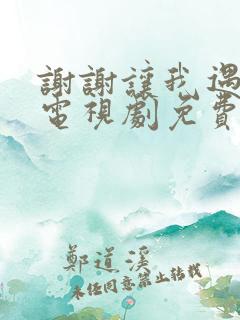 謝謝讓我遇
電視劇免費
鄭道溪
未經同意禁止轉載